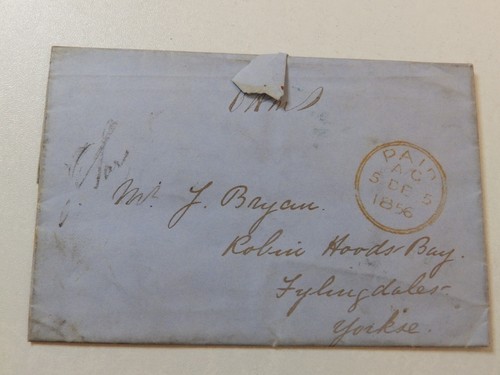 OHMS
PAID
A.C.
5 DE 5
1856
Mr. J. Bryan.
Robin Hoods Bay.
Fylingdales
Yorkse.